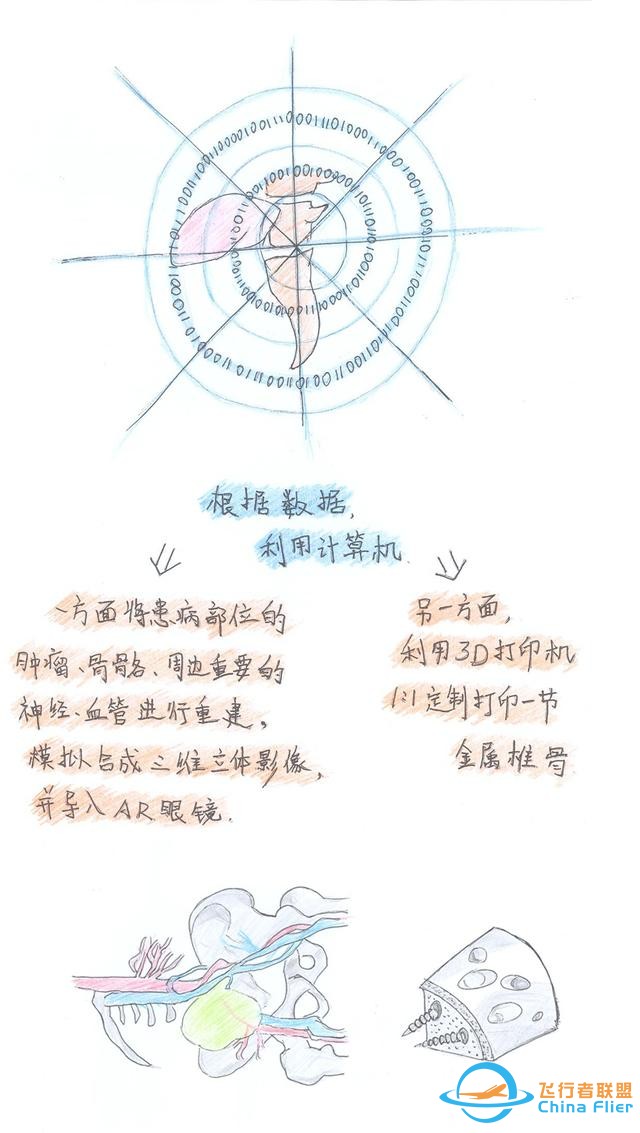 根据数据,
利用计算机
一方面将患病部位的
肿瘤、骨骼、周边重要的
神经、血管进行重建,
模拟合成三维立体影像,
并导入AR眼镜.
另一方面,
利用3D打印机
1:1定制打印一节
金属椎骨
飞行者联盟
China Flier